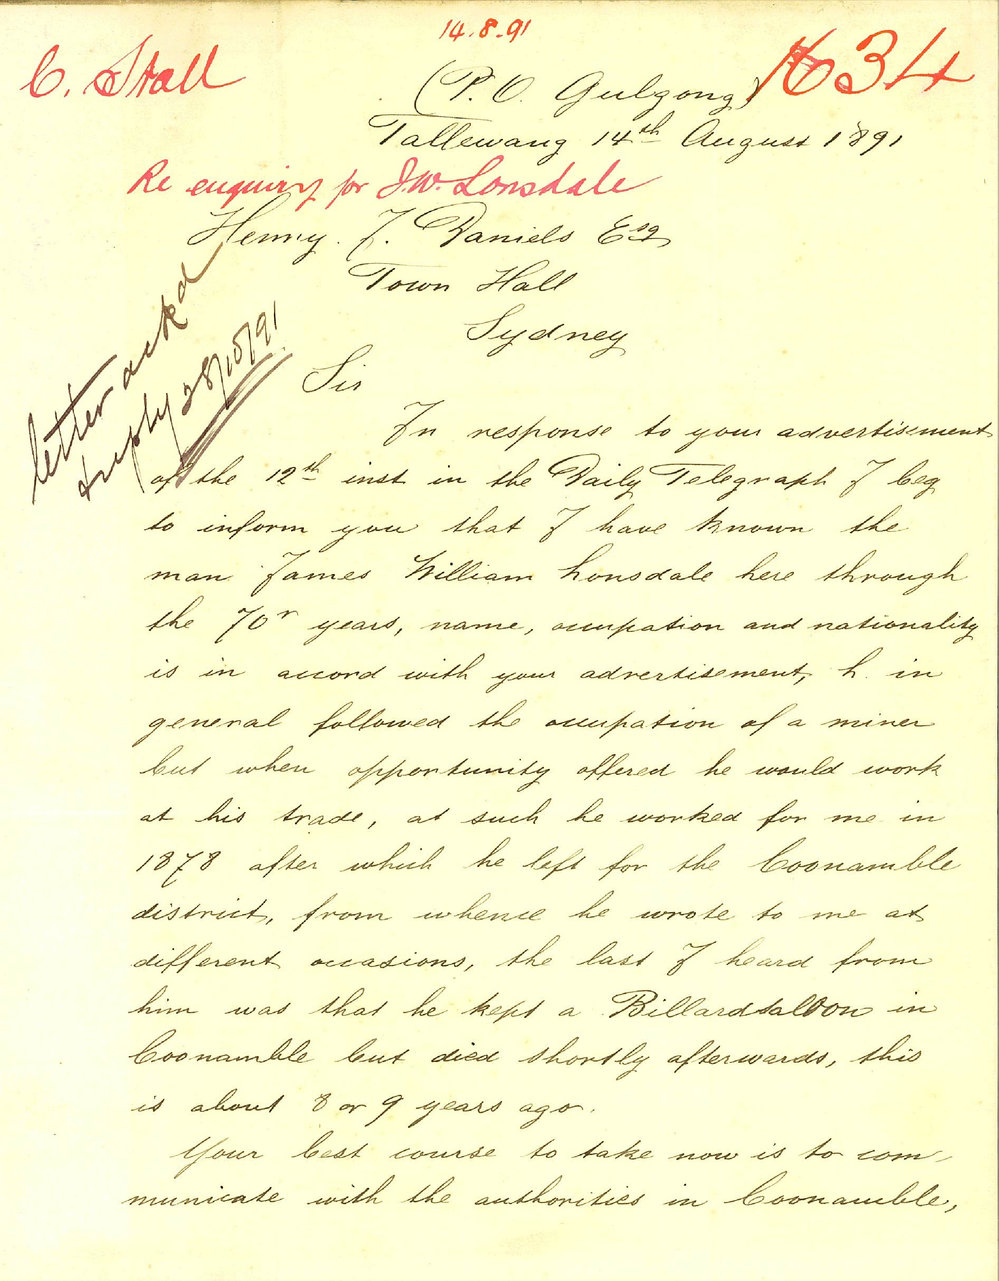 14.8.91
C. Stall
1634
(P. O. Gulgong)
Tallewang 14th August 1891
Re enquiry for J.W. Lonsdale
Henry. F. Daniels Esq
Town Hall
Sydney
letter ackd
& reply 28/10/91
Sir
In response to your advertisement
of the 12th inst in the Daily Telegraph I beg
to inform you that I have known the
man James William Lonsdale here through
the 70r years, name, occupation and nationality
is in accord with your advertisement, h. in
general followed the occupation of a miner
but when opportunity offered he would work
at his trade, at such he worked for me in
1878 after which he left for the Coonamble
district, from whence he wrote to me at
different occasions, the last I heard from
him was that he kept a Billardsaloon in
Coonamble but died shortly afterwards, this
is about 8 or 9 years ago.
Your best course to take now is to com-
municate with the authorities in Coonamble,